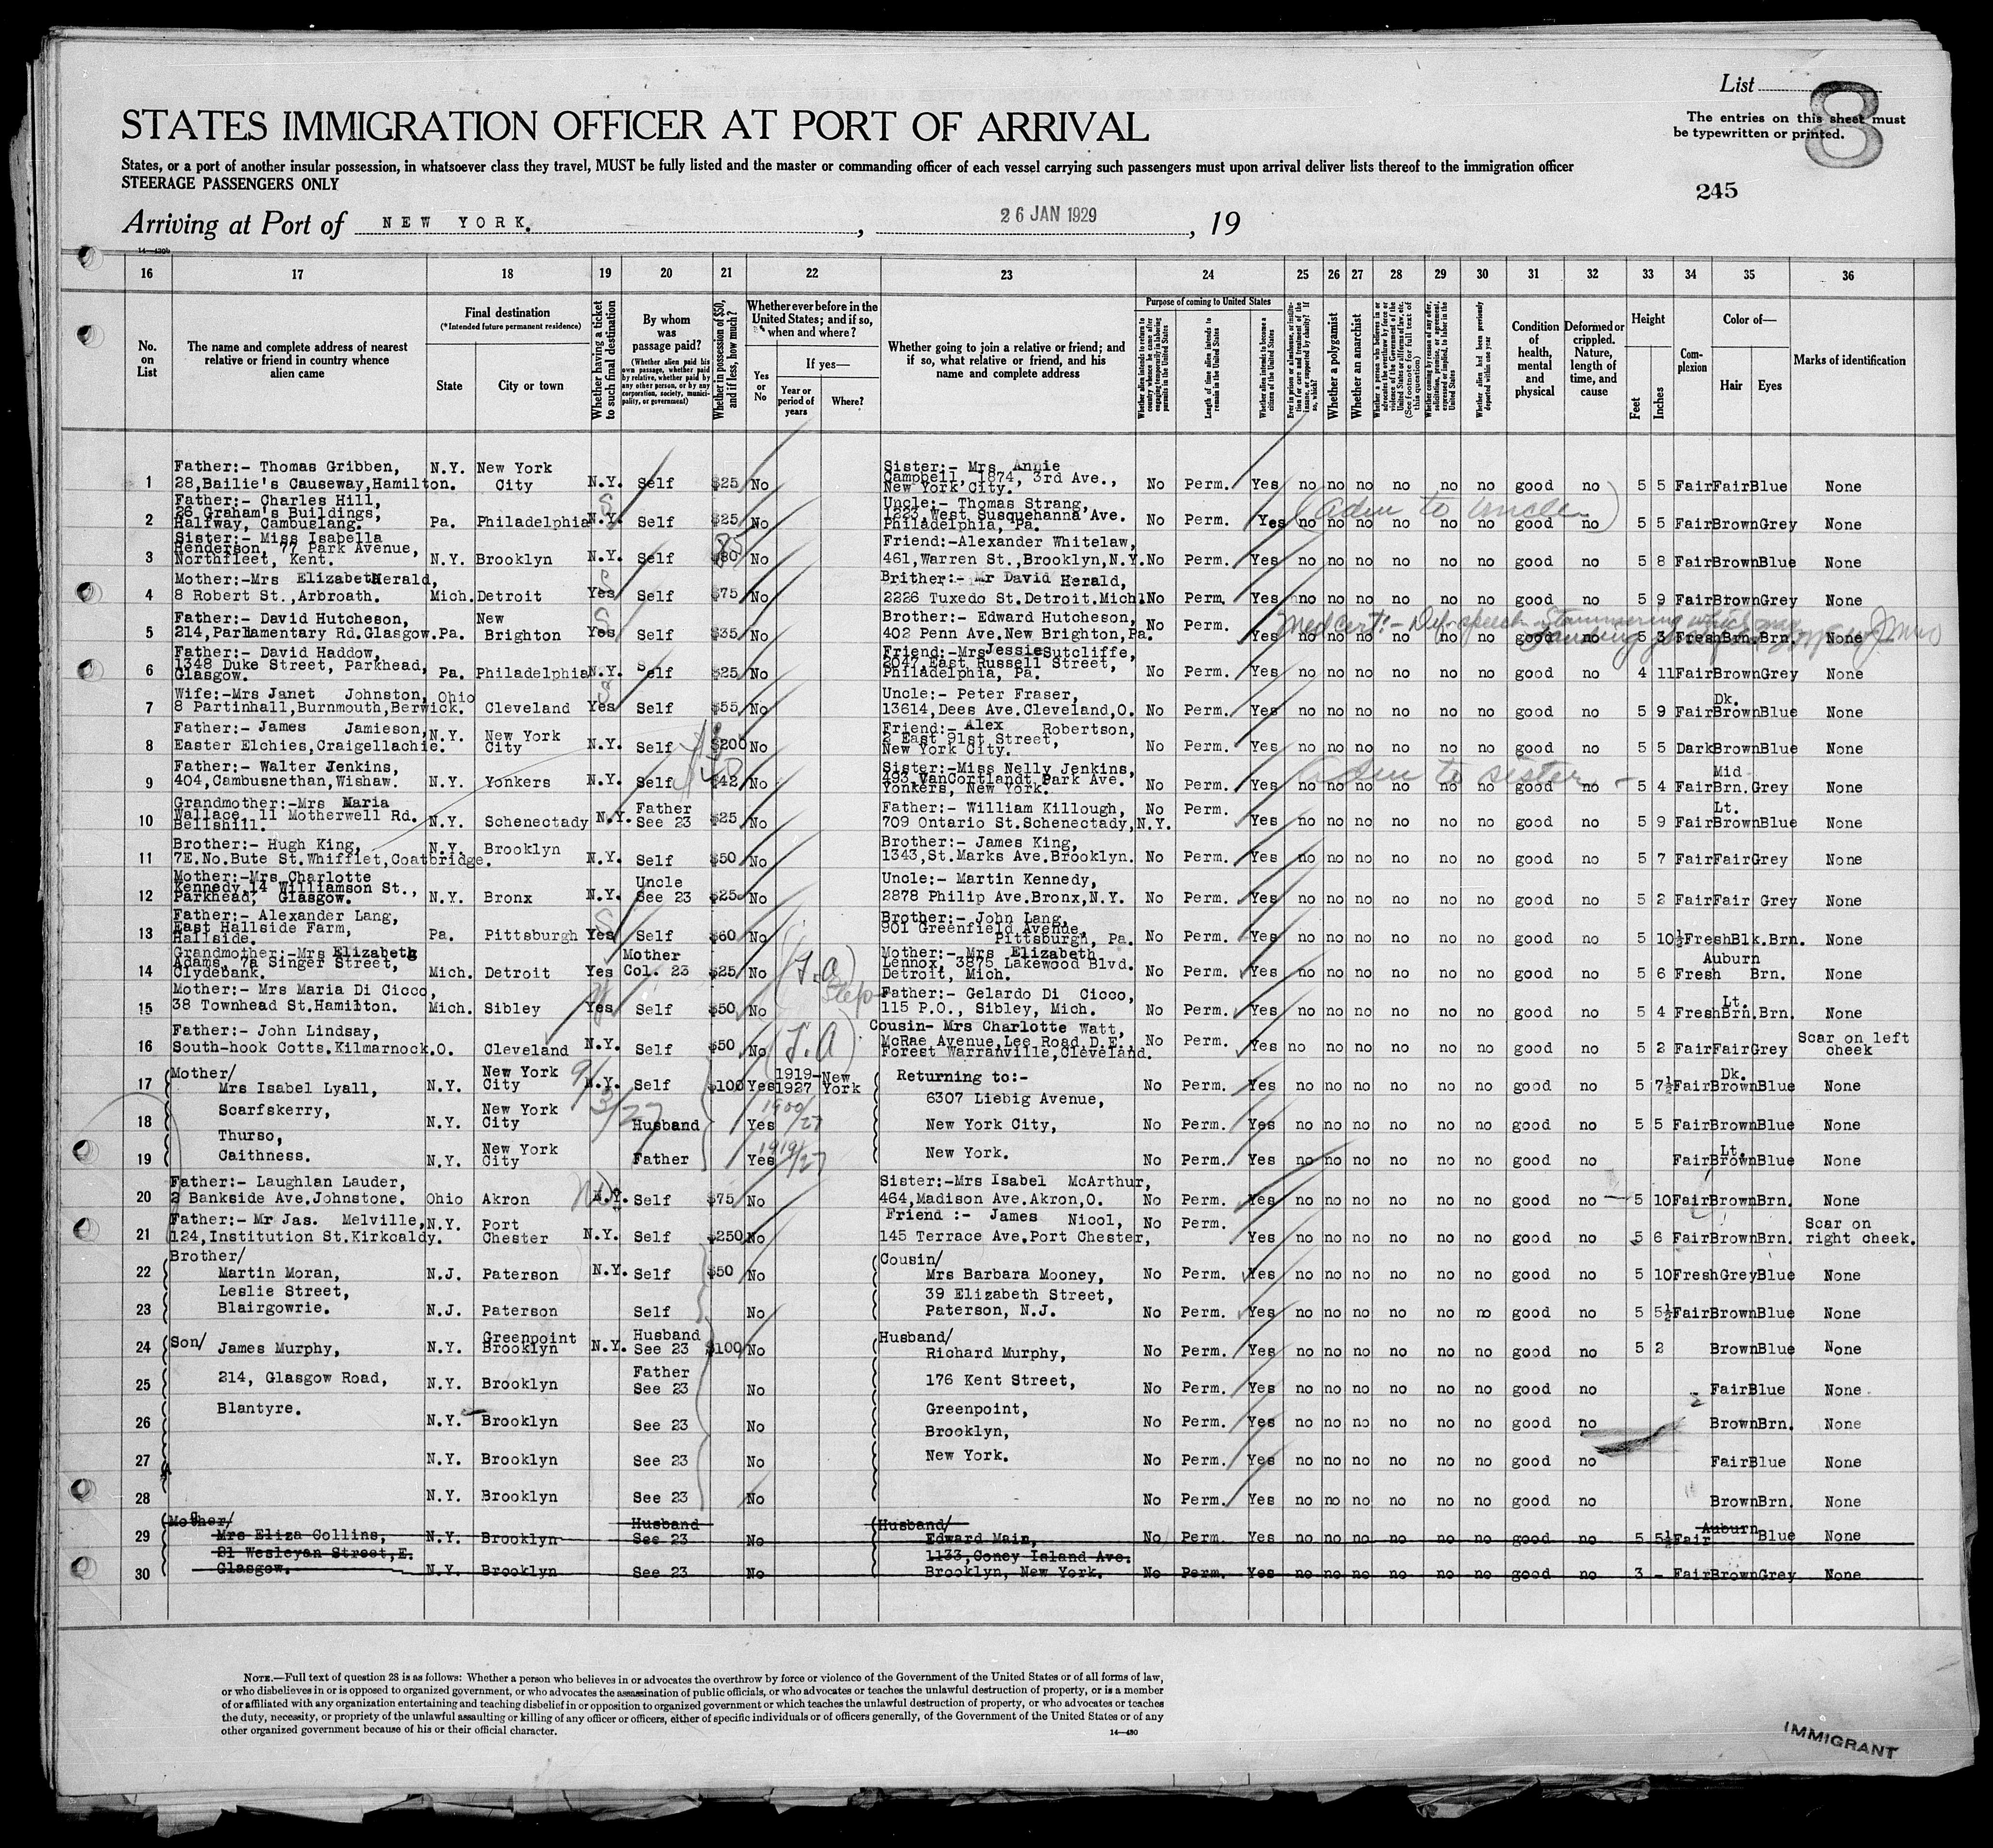 List 8
The entries on this sheet must
be typewritten or printed.
STATES IMMIGRATION OFFICER AT PORT OF ARRIVAL
States, or a port of another insular possession, in whatsoever class they travel, MUST be fully listed and the master or commanding officer of each vessel carrying such passengers must upon arrival deliver lists thereof to the immigration officer
STEERAGE PASSENGERS ONLY
245
Arriving at Port of NEW YORK. , 26 JAN 1929 , 19
14—430b
16 17 18 19 20 21 22 23 24 25 26 27 28 29 30 31 32 33 34 35 36
No. on List
The name and complete address of nearest relative or friend in country whence alien came
Final destination
(*Intended future permanent residence)
State
City or town
Whether having a ticket to such final destination
By whom was passage paid?
(Whether alien paid his own passage, whether paid by relative, whether paid by any other person, or by any corporation, society, municipality, or government)
Whether in possession of $50, and if less, how much?
Whether ever before in the United States; and if so, when and where?
Yes or No
If yes—
Year or period of years
Where?
Whether going to join a relative or friend; and if so, what relative or friend, and his name and complete address
Purpose of coming to United States
Whether alien intends to return to country whence he came after engaging temporarily in laboring pursuits in the United States
Length of time alien intends to remain in the United States
Whether alien intends to become a citizen of the United States
Ever in prison or almshouse, or institution for care and treatment of the insane, or supported by charity? If so, which?
Whether a polygamist
Whether an anarchist
Whether a person who believes in or advocates the overthrow by force or violence of the Government of the United States or all forms of law, etc. (See footnote for full text of this question)
Whether coming by reason of any offer, solicitation, promise, or agreement, expressed or implied, to labor in the United States
Whether alien had been previously deported within one year
Condition of health, mental and physical
Deformed or crippled. Nature, length of time, and cause
Height
Feet
Inches
Complexion
Color of—
Hair
Eyes
Marks of identification
1 Father:- Thomas Gribben, 28,Bailie's Causeway,Hamilton. N.Y. New York City N.Y. Self $25 No Sister:- Mrs Annie Campbell, 1874, 3rd Ave., New York City. No Perm. Yes no no no no no no good no 5 5 Fair Fair Blue None
2 Father:- Charles Hill, 26 Graham's Buildings, Halfway, Cambuslang. Pa. Philadelphia N.Y. S Self $25 No Uncle:- Thomas Strang, 1223,West Susquehanna Ave. Philadelphia, Pa. No Perm. Yes no no no no no no good no 5 5 Fair Brown Grey None
(adm to uncle)
3 Sister:- Miss Isabella Henderson, 77 Park Avenue, Northfleet, Kent. N.Y. Brooklyn N.Y. Self $80 85 No Friend:-Alexander Whitelaw, 461,Warren St.,Brooklyn,N.Y. No Perm. Yes no no no no no no good no 5 8 Fair Brown Blue None
4 Mother:-Mrs Elizabeth Herald, 8 Robert St.,Arbroath. Mich. Detroit Yes S Self $75 No Brither:- Mr David Herald, 2226 Tuxedo St.Detroit.Mich. No Perm. Yes no no no no no no good no 5 9 Fair Brown Grey None
5 Father:- David Hutcheson, 214,Parliamentary Rd.Glasgow. Pa. New Brighton Yes S Self $35 No Brother:- Edward Hutcheson, 402 Penn Ave.New Brighton,Pa. No Perm. Yes no no no no no no good no 5 3 Fresh Brn. Brn. None
Med cert:- Def. speech stammering which may
6 Father:- David Haddow, 1348 Duke Street, Parkhead, Glasgow. Pa. Philadelphia N.Y. Self $25 No Friend:-Mrs Jessie Sutcliffe, 2047,East Russell Street, Philadelphia, Pa. No Perm. Yes no no no no no no good no 4 11 Fair Brown Grey None
7 Wife:-Mrs Janet Johnston, 8 Partinhall,Burnmouth,Berwick. Ohio Cleveland Yes S Self $55 No Uncle:- Peter Fraser, 13614,Dees Ave.Cleveland,O. No Perm. Yes no no no no no no good no 5 9 Fair Dk. Brown Blue None
8 Father:- James Jamieson, Easter Elchies,Craigellachie. N.Y. New York City N.Y. Self $200 No Friend:- Alex Robertson, 2 East 91st Street, New York City. No Perm. Yes no no no no no no good no 5 5 Dark Brown Blue None
9 Father:- Walter Jenkins, 404,Cambusnethan,Wishaw. N.Y. Yonkers N.Y. Self $42 No Sister:-Miss Nelly Jenkins, 493,VanCortlandt Park Ave. Yonkers, New York. No Perm. Yes no no no no no no good no 5 4 Fair Mid Brn. Grey None
adm to sister
10 Grandmother:-Mrs Maria Wallace, 11 Motherwell Rd. Bellshill. N.Y. Schenectady N.Y. Father See 23 $25 No Father:- William Killough, 709 Ontario St.Schenectady,N.Y. No Perm. Yes no no no no no no good no 5 9 Fair Lt. Brown Blue None
11 Brother:- Hugh King, 7E.No.Bute St.Whifflet,Coatbridge. N.Y. Brooklyn N.Y. Self $50 No Brother:- James King, 1343,St.Marks Ave.Brooklyn. No Perm. Yes no no no no no no good no 5 7 Fair Fair Grey None
12 Mother:-Mrs Charlotte Kennedy,14 Williamson St., Parkhead, Glasgow. N.Y. Bronx N.Y. Uncle See 23 $25 No Uncle:- Martin Kennedy, 2878 Philip Ave.Bronx,N.Y. No Perm. Yes no no no no no no good no 5 2 Fair Fair Grey None
13 Father:- Alexander Lang, East Hallside Farm, Hallside. Pa. Pittsburgh Yes S Self $60 No Brother:- John Lang, 901 Greenfield Avenue, Pittsburgh, Pa. No Perm. Yes no no no no no no good no 5 10½ Fresh Blk. Brn. None
14 Grandmother:-Mrs Elizabeth Adams, 7a Singer Street, Clydebank. Mich. Detroit Yes Mother Col. 23 $25 No Mother:- Mrs Elizabeth Lennox, 3875 Lakewood Blvd. Detroit, Mich. No Perm. Yes no no no no no no good no 5 6 Fresh Auburn Brn. None
15 Mother:- Mrs Maria Di Cicco, 38 Townhead St.Hamilton. Mich. Sibley Yes Self $50 No Step- Father:- Gelardo Di Cicco, 115 P.O., Sibley, Mich. No Perm. Yes no no no no no no good no 5 4 Fresh Lt. Brn. Brn. None
16 Father:- John Lindsay, South-hook Cotts.Kilmarnock. O. Cleveland N.Y. Self $50 No Cousin- Mrs Charlotte Watt, McRae Avenue,Lee Road,D.E. Forest Warranville,Cleveland. No Perm. Yes no no no no no no good no 5 2 Fair Fair Grey Scar on left cheek
17 Mother/ Mrs Isabel Lyall, N.Y. New York City N.Y. Self $100 Yes 1919-1927 New York Returning to:- 6307 Liebig Avenue, No Perm. Yes no no no no no no good no 5 7½ Fair Dk. Brown Blue None
9/3/27
18 Scarfskerry, N.Y. New York City Husband Yes 1900/27 New York City, No Perm. Yes no no no no no no good no 5 5 Fair Brown Blue None
19 Thurso, Caithness. N.Y. New York City Father Yes 1919/27 New York. No Perm. Yes no no no no no no good no Fair Lt. Brown Blue None
20 Father:- Laughlan Lauder, 2 Bankside Ave.Johnstone. Ohio Akron N.Y. Self $75 No Sister:-Mrs Isabel McArthur, 464,Madison Ave.Akron,O. No Perm. Yes no no no no no no good no 5 10 Fair Brown Brn. None
21 Father:- Mr Jas. Melville, 124,Institution St.Kirkcaldy. N.Y. Port Chester N.Y. Self $250 No Friend :- James Nicol, 145 Terrace Ave.Port Chester, No Perm. Yes no no no no no no good no 5 6 Fair Brown Brn. Scar on right cheek.
22 Brother/ Martin Moran, Leslie Street, N.J. Paterson N.Y. Self $50 No Cousin/ Mrs Barbara Mooney, 39 Elizabeth Street, No Perm. Yes no no no no no no good no 5 10 Fresh Grey Blue None
23 Blairgowrie. N.J. Paterson Self No Paterson, N.J. No Perm. Yes no no no no no no good no 5 5½ Fair Brown Blue None
24 Son/ James Murphy, N.Y. Greenpoint Brooklyn N.Y. Husband See 23 $100 No Husband/ Richard Murphy, No Perm. Yes no no no no no no good no 5 2 Brown Blue None
25 214, Glasgow Road, N.Y. Brooklyn Father See 23 No 176 Kent Street, No Perm. Yes no no no no no no good no Fair Blue None
26 Blantyre. N.Y. Brooklyn See 23 No Greenpoint, Brooklyn, No Perm. Yes no no no no no no good no Brown Brn. None
27 N.Y. Brooklyn See 23 No New York. No Perm. Yes no no no no no no good no Fair Blue None
28 N.Y. Brooklyn See 23 No No Perm. Yes no no no no no no good no Brown Brn. None
29 Mother/ Mrs Eliza Collins, 81 Wesleyan Street,E. N.Y. Brooklyn Husband See 23 No Husband/ Edward Main, 1133,Coney Island Ave. No Perm. Yes no no no no no no good no 5 5½ Fair Auburn Blue None
30 Glasgow. N.Y. Brooklyn See 23 No Brooklyn, New York. No Perm. Yes no no no no no no good no 3 - Fair Brown Grey None
NOTE.—Full text of question 28 is as follows: Whether a person who believes in or advocates the overthrow by force or violence of the Government of the United States or of all forms of law,
or who disbelieves in or is opposed to organized government, or who advocates the assassination of public officials, or who advocates or teaches the unlawful destruction of property, or is a member
of or affiliated with any organization entertaining and teaching disbelief in or opposition to organized government or which teaches the unlawful destruction of property, or who advocates or teaches
the duty, necessity, or propriety of the unlawful assaulting or killing of any officer or officers, either of specific individuals or of officers generally, of the Government of the United States or of any
other organized government because of his or their official character.
14—430
IMMIGRANT